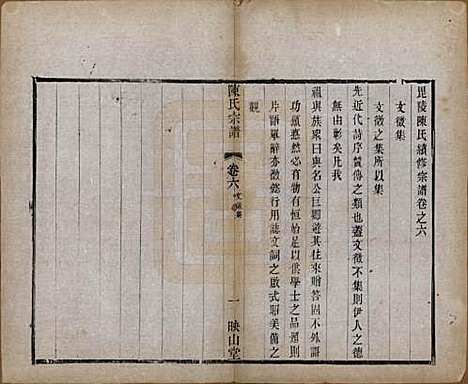 毘陵陳氏續修宗譜卷之六
文徵集
文徵之集所以集
先近代詩序贊傳之類也蓋文徵不集則伊人之德
無由彰矣凡我
祖與族衆曰與名公巨卿遊其往來贈答固不外譜
功蘊發然必有物有恒始足以供學士之品題則
片語單辭亦徵信行用誌文詞之啟式昭美備之
觀
陳氏宗譜
卷六
文徵集
一
映山堂